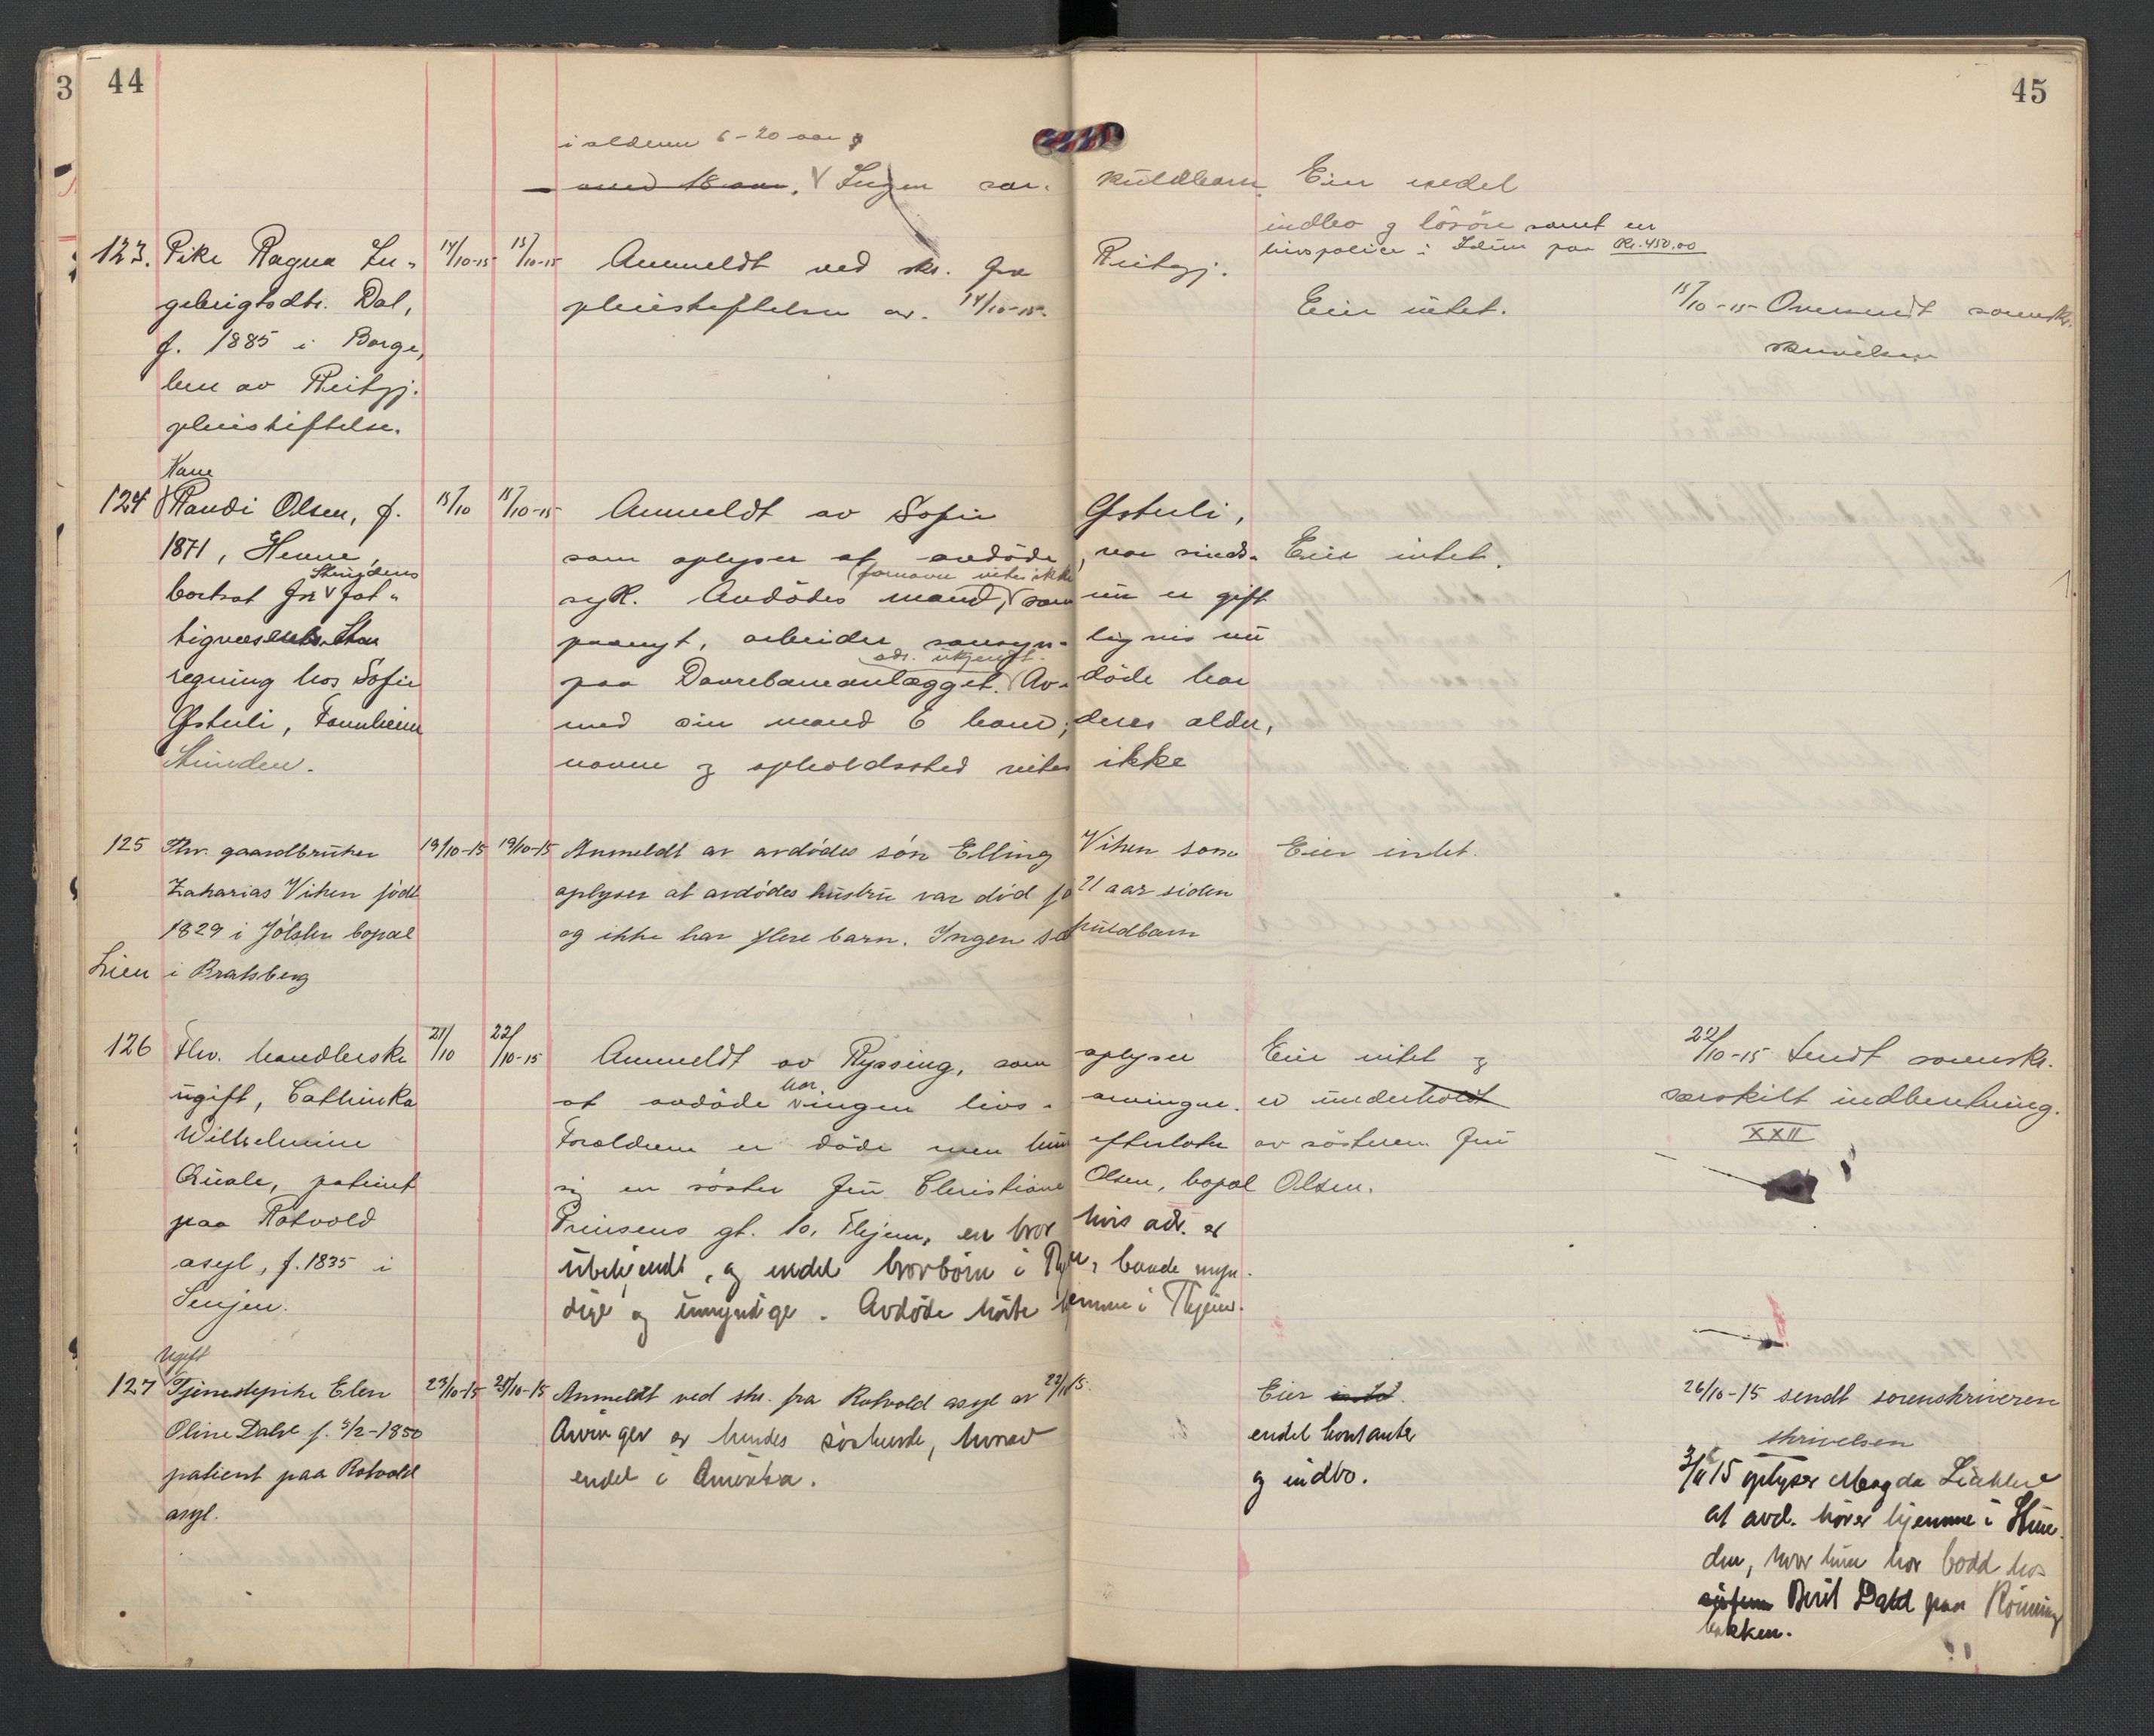 3 44
45
i alderen 6-20 aar
Ingen sær-
kuldbarn. Eier endel
indbo g lösöre samt en
livspolice i Idun paa Kr. 450.00
123. Pike Ragna In-
gebrigtsdtr. Dal,
f. 1885 i Borge,
lem av Reitgj.
pleiestiftelse.
14/10-15 15/10-15
Anmeldt ved skr. fra Reitgj.
pleiestiftelse av 14/10-15.
Eier intet.
15/10-15 Oversendt sorenskr.
skrivelsen
Kone
124 Randi Olsen, f.
1871, Hemne,
Strindens
bortsat for fat-
tigvæsenets
regning hos Sofie
Ystuli, Tomheim
Strinden.
15/10 15/10-15
Anmeldt av Sofie Ystuli,
som oplyser at avdöde var sinds-
(fornavn vites ikke
syk. Avdödes mand, som nu er gift
paanyt, arbeider sansyn- ligvis nu
adr. ukjendt.
paa Dovrebaneanlægget. Av- döde har
med sin mand 6 barn; deres alder,
navne g opholdssted vites ikke
Eier intet.
125 Fhv. gaardbruker
Zakarias Viken född
1829 i Jölster bopæl
Lien i Bratsberg
19/10-15 19/10-15
Anmeldt av avdödes sön Elling Viken som
oplyser at avdödes hustru var död for 21 aar siden
og ikke har flere barn. Ingen særkuldbarn
Eier intet.
126 Fhv. handlerske
ugift, Cathinka
Wilhelmine
Quale, patient
paa Rotvold
asyl, f. 1835 i
Senjen.
21/10 22/10-15
Anmeldt av Ryssing, som oplyser
har
at avdöde ingen livs- arvinger.
Forældrene er döde men hun efterlater
sig en söster Fru Christiane Olsen, bopæl
Prinsens gt. 10, Thjem, en bror hvis adr. er
ubekjendt, og endel brorbörn i Byen, baade myn-
dige g umyndige. Avdöde hörte hjemme i Thjem.
Eier intet g
er underholdt
av sösteren Fru
Olsen.
22/10-15 Sendt sorenskr.
særskilt indberetning.
XXII
Ugift
127 Tjenestepike Elen
Oline Dahl f. 5/2-1850
patient paa Rotvold
asyl.
23/10-15 25/10-15
Anmeldt ved skr. fra Rotvold asyl av 23/10 15.
Arvinger er hendes söskende, hvorav
endel i Amerika.
Eier intet.
endel kontanter
g indbo.
26/10-15 sendt sorenskriveren
skrivelsen
3/11 15 oplyser Magda
at avd. hörer hjemme i Strin-
den, hvor hun har bodd hos
sösteren Beril Dahl paa Rönning
bakken.